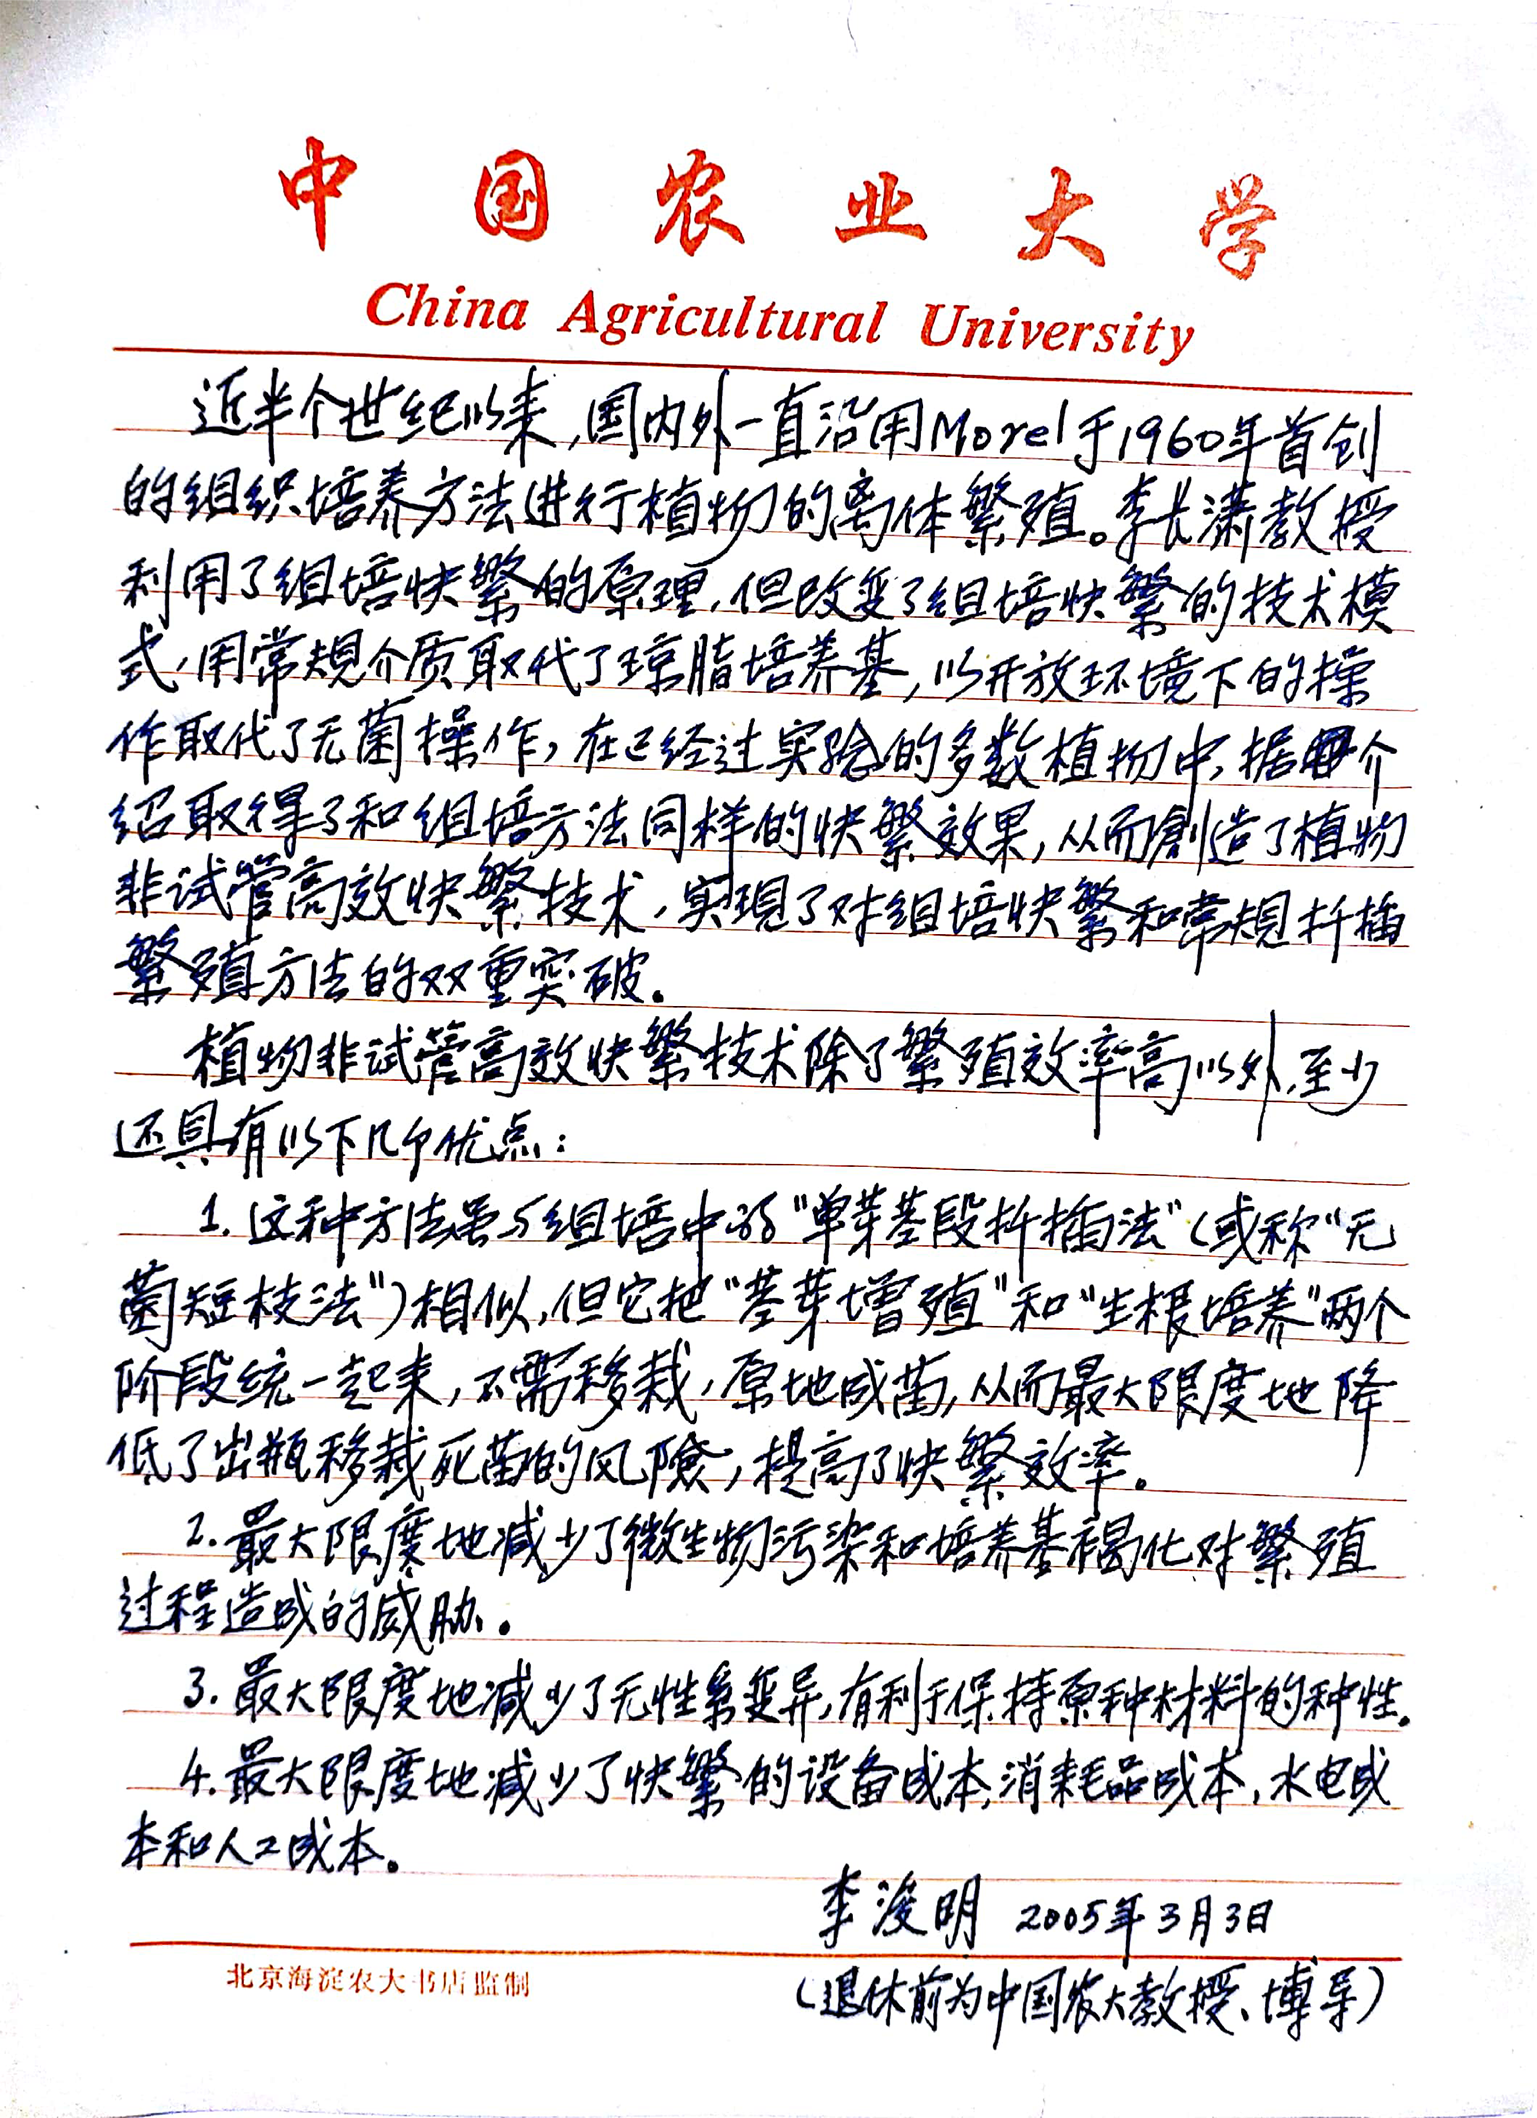 中国农业大学
China Agricultural University
近半个世纪以来,国内外一直沿用Morel于1960年首创
的组织培养方法进行植物的离体繁殖。李长潇教授
利用了组培快繁的原理,但改变了组培快繁的技术模
式,用常规介质取代了琼脂培养基,以开放环境下的操
作取代了无菌操作,在已经过实验的多数植物中,据介
绍取得了和组培方法同样的快繁效果,从而创造了植物
非试管高效快繁技术,实现了对组培快繁和常规扦插
繁殖方法的双重突破。
植物非试管高效快繁技术除了繁殖效率高以外,至少
还具有以下几个优点:
1. 这种方法虽与组培中的"单芽茎段扦插法"(或称"无
菌短枝法")相似,但它把"茎芽增殖"和"生根培养"两个
阶段统一起来,不需移栽,原地成苗,从而最大限度地降
低了出瓶移栽死苗的风险,提高了快繁效率。
2. 最大限度地减少了微生物污染和培养基褐化对繁殖
过程造成的威胁。
3. 最大限度地减少了无性系变异,有利于保持原种材料的种性。
4. 最大限度地减少了快繁的设备成本,消耗品成本,水电成
本和人工成本。
李浚明 2005年3月3日
(退休前为中国农大教授、博导)
北京海淀农大书店监制